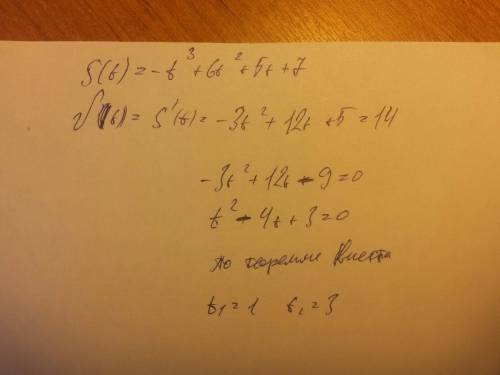 S(t) = -t³ + 6t² + 5t + 7
V(t) = S'(t) = -3t² + 12t + 5 = 14
-3t² + 12t - 9 = 0
t² - 4t + 3 = 0
по теореме Виета
t₁ = 1 t₂ = 3